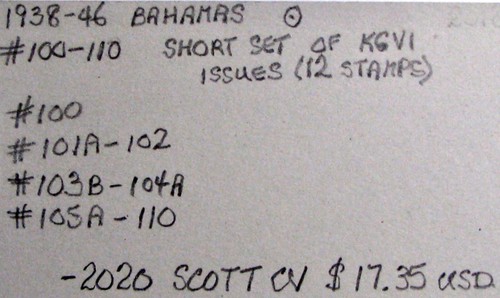 1938-46 BAHAMAS ⊙
#100-110 SHORT SET OF KGVI
ISSUES (12 STAMPS)
#100
#101A-102
#103B-104A
#105A-110
-2020 SCOTT CV $17.35 USD